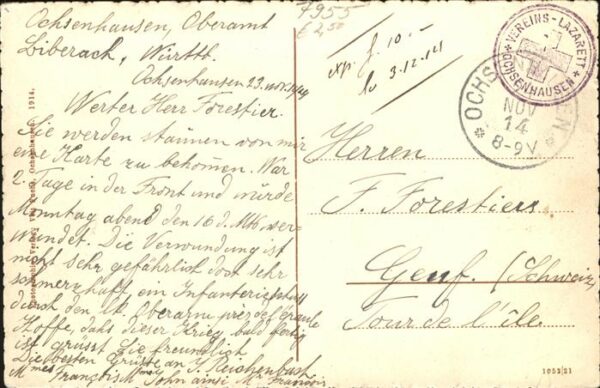 Ochsenhausen, Oberamt
Biberach, Württb.
Ochsenhausen 23. nov. 1914
Werter Herr Forestier.
Sie werden staunen von mir
eine Karte zu bekommen. War
2. Tage in der Front und wurde
Monntag abend den 16 d. Mts. ver-
wundet. Die Verwundung ist
nicht sehr gefährlich doch sehr
schmerzhaft, ein Infanterieschuss
durch den lk. Oberarm
Hoffe, dass dieser Krieg bald fertig
ist grüsst Sie freundlich
Die besten Grüsse an J. Reichenbach
Mmes John ainsi M. Francis
7955
£ 2,50
10.-
3-12-14
VEREINS-LAZARETT
OCHSENHAUSEN
OCHS EN
NOV
14
8-9V
Herren
F. Forestiers
Genf. (Schweiz)
Tour de l'île
Ochsenhausen. 1914.
1053/21